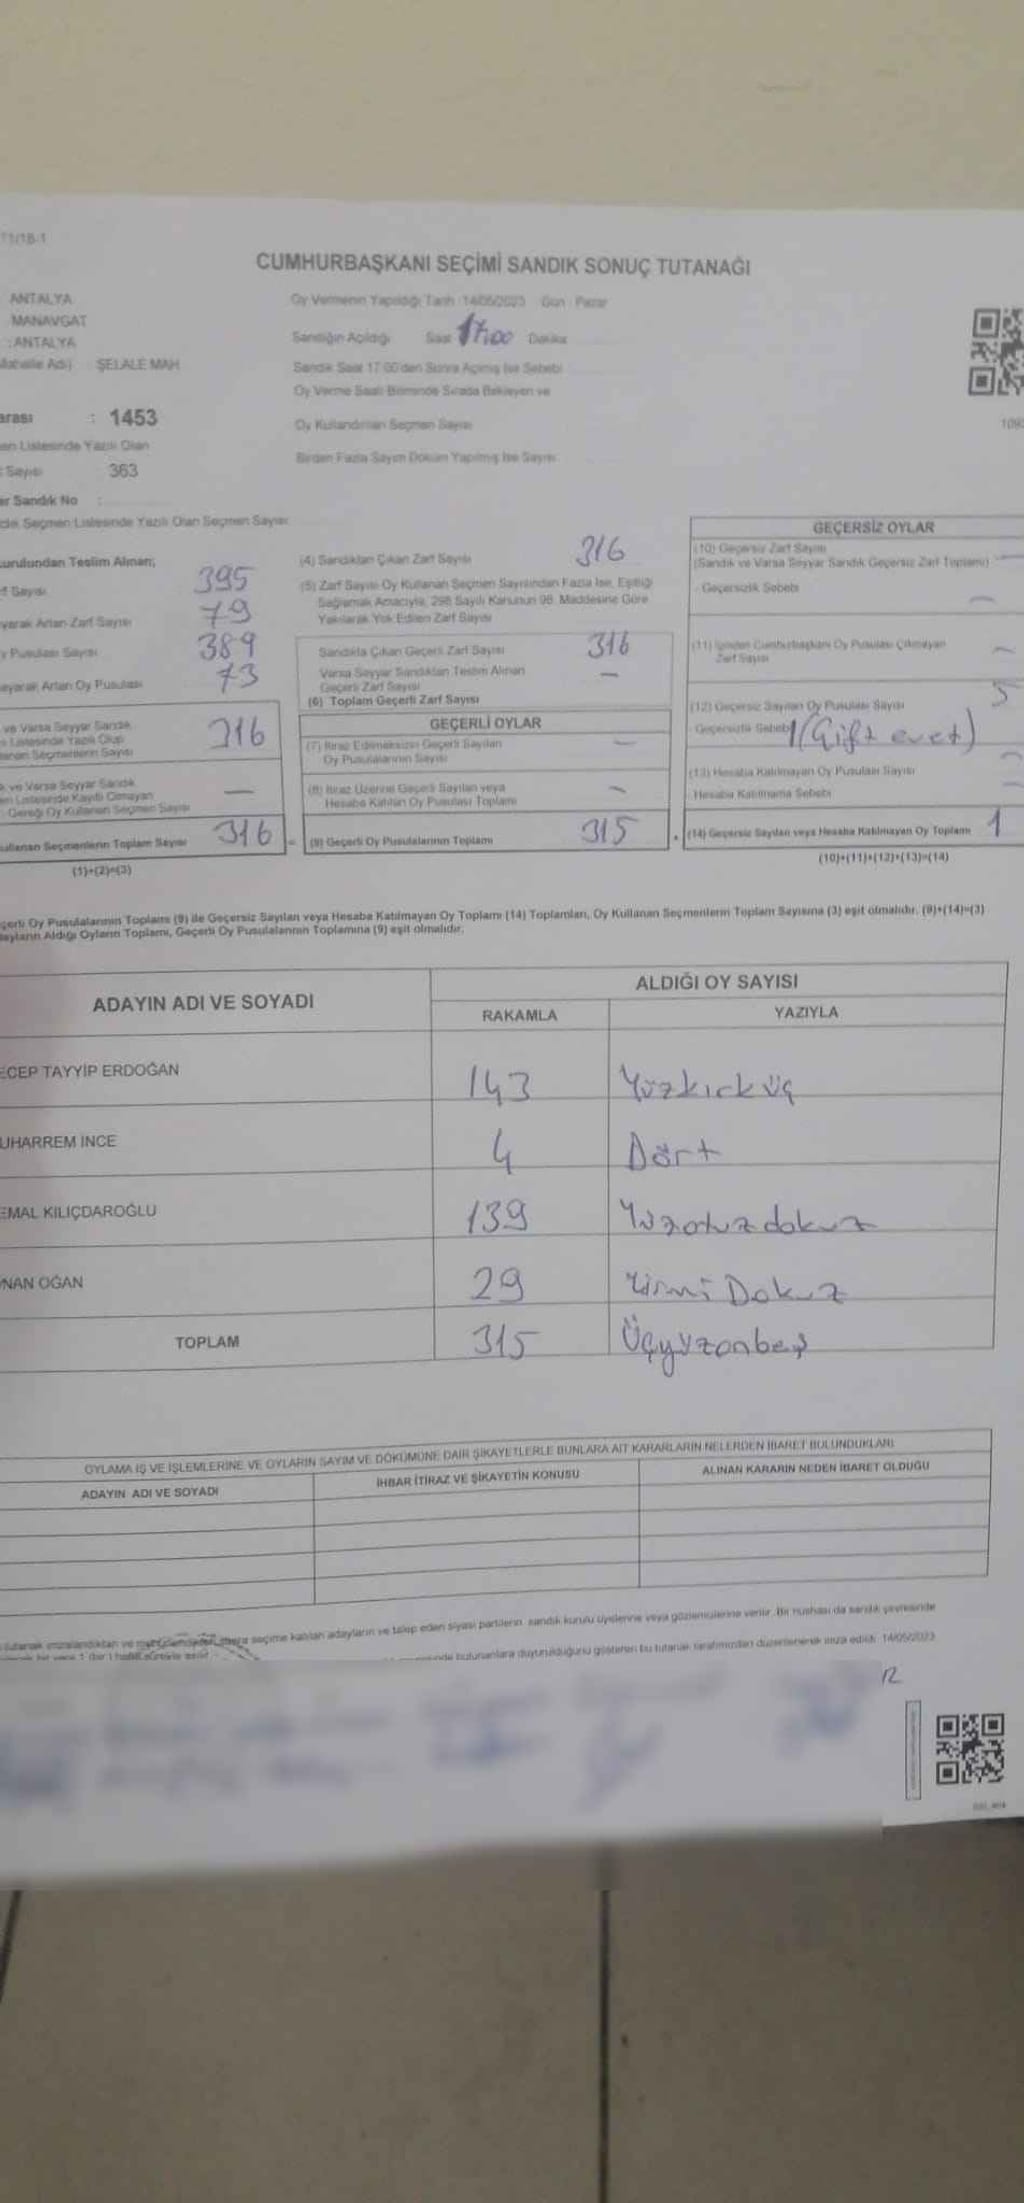 CUMHURBAŞKANI SEÇİMİ SANDIK SONUÇ TUTANAĞI
ANTALYA
MANAVGAT
: ANTALYA
Mahalle Adı) ŞELALE MAH
arası : 1453
en Listesinde Yazılı Olan
Sayısı 363
er Sandık No :
de Seçmen Listesinde Yazılı Olan Seçmen Sayısı
Oy Vermenin Yapıldığı Tarih 14/05/2023 Gün : Pazar
Sandığın Açıldığı Saat 17:00 Dakika
Sandık Saat 17.00'den Sonra Açılmış İse Sebebi
Oy Verme Saati Bitiminde Sırada Bekleyen ve
Oy Kullandırılan Seçmen Sayısı
Birden Fazla Sayım Döküm Yapılmış İse Sayısı
urulundan Teslim Alınan;
Sayısı 395
yarak Artan Zarf Sayısı 79
y Pusulası Sayısı 389
ayarak Artan Oy Pusulası 73
ve Varsa Seyyar Sandık
Listesinde Yazılı Olup
Seçmenlerin Sayısı 316
ve Varsa Seyyar Sandık
en Listesinde Kayıtlı Olmayan
Gereği Oy Kullanan Seçmen Sayısı —
ullanan Seçmenlerin Toplam Sayısı 316
(1)+(2)=(3)
(4) Sandıktan Çıkan Zarf Sayısı 316
(5) Zarf Sayısı Oy Kullanan Seçmen Sayısından Fazla İse, Eşitliği
Sağlamak Amacıyla, 298 Sayılı Kanunun 98. Maddesine Göre
Yakılarak Yok Edilen Zarf Sayısı
Sandıkta Çıkan Geçerli Zarf Sayısı 316
Varsa Seyyar Sandıktan Teslim Alınan
Geçerli Zarf Sayısı —
(6) Toplam Geçerli Zarf Sayısı
GEÇERLİ OYLAR
(7) İtiraz Edilmeksizin Geçerli Sayılan
Oy Pusulalarının Sayısı —
(8) İtiraz Üzerine Geçerli Sayılan veya
Hesaba Katılan Oy Pusulası Toplamı —
(9) Geçerli Oy Pusulalarının Toplamı 315
GEÇERSİZ OYLAR
(10) Geçersiz Zarf Sayısı
(Sandık ve Varsa Seyyar Sandık Geçersiz Zarf Toplamı) —
Geçersizlik Sebebi —
(11) İçinden Cumhurbaşkanı Oy Pusulası Çıkmayan
Zarf Sayısı —
(12) Geçersiz Sayılan Oy Pusulası Sayısı
Geçersizlik Sebebi 1 (Çift evet)
(13) Hesaba Katılmayan Oy Pusulası Sayısı —
Hesaba Katılmama Sebebi —
(14) Geçersiz Sayılan veya Hesaba Katılmayan Oy Toplamı 1
(10)+(11)+(12)+(13)=(14)
çerli Oy Pusulalarının Toplamı (9) ile Geçersiz Sayılan veya Hesaba Katılmayan Oy Toplamı (14) Toplamları, Oy Kullanan Seçmenlerin Toplam Sayısına (3) eşit olmalıdır. (9)+(14)=(3)
dayların Aldığı Oyların Toplamı, Geçerli Oy Pusulalarının Toplamına (9) eşit olmalıdır.
ADAYIN ADI VE SOYADI ALDIĞI OY SAYISI
RAKAMLA YAZIYLA
ECEP TAYYİP ERDOĞAN 143 Yüzkırk üç
UHARREM İNCE 4 Dört
EMAL KILIÇDAROĞLU 139 Yüzotuzdokuz
NAN OĞAN 29 Yirmi Dokuz
TOPLAM 315 Üçyüzonbeş
OYLAMA İŞ VE İŞLEMLERİNE VE OYLARIN SAYIM VE DÖKÜMÜNE DAİR ŞİKAYETLERLE BUNLARA AİT KARARLARIN NELERDEN İBARET BULUNDUKLARI
ADAYIN ADI VE SOYADI İHBAR İTİRAZ VE ŞİKAYETİN KONUSU ALINAN KARARIN NEDEN İBARET OLDUĞU
tutanak imzalandıktan ve seçime katılan adayların ve talep eden siyasi partilerin sandık kurulu üyelerine veya gözlemcilerine verilir. Bir nüshası da sandık çevresinde
bulunanlara duyurulduğunu gösteren bu tutanak tarafımızdan düzenlenerek imza edildi. 14/05/2023
12